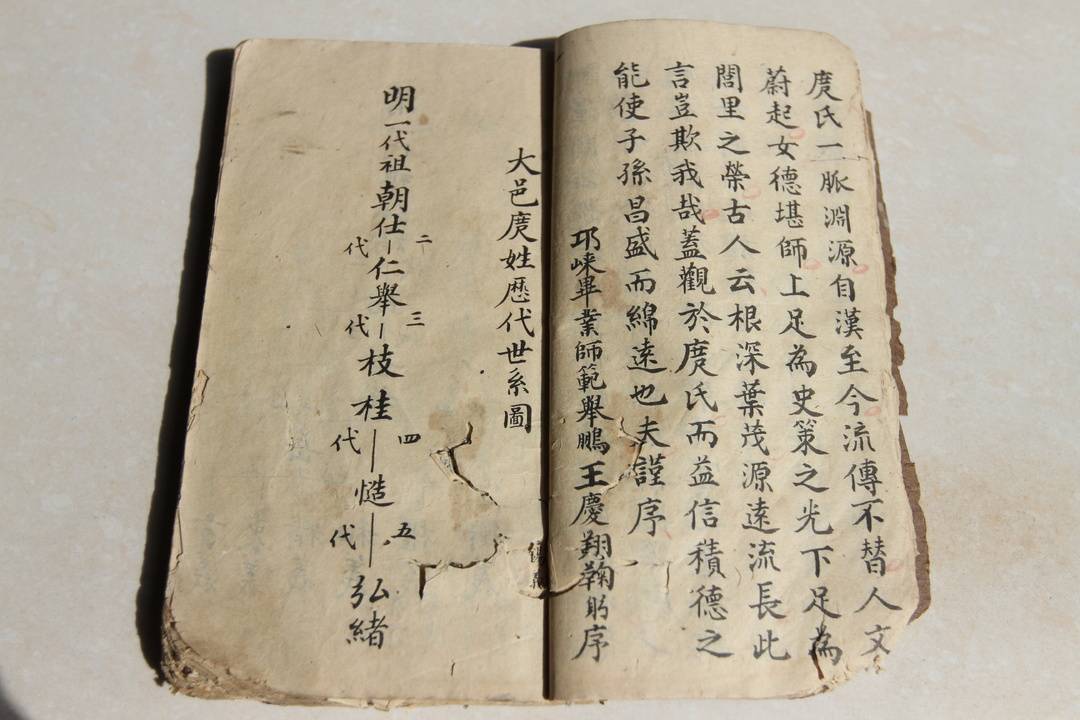 庹氏一脈淵源自漢至今流傳不替人文
蔚起女德堪師上足為史策之光下足為
閭里之榮古人云根深葉茂源遠流長此
言豈欺我哉蓋觀於庹氏而益信積德之
能使子孫昌盛而綿遠也夫謹序
邛崍畢業師範舉鵬王慶翔鞠躬序
大邑庹姓歷代世系圖
明一代祖朝仕二代仁舉三代枝桂四代慥五代弘緒